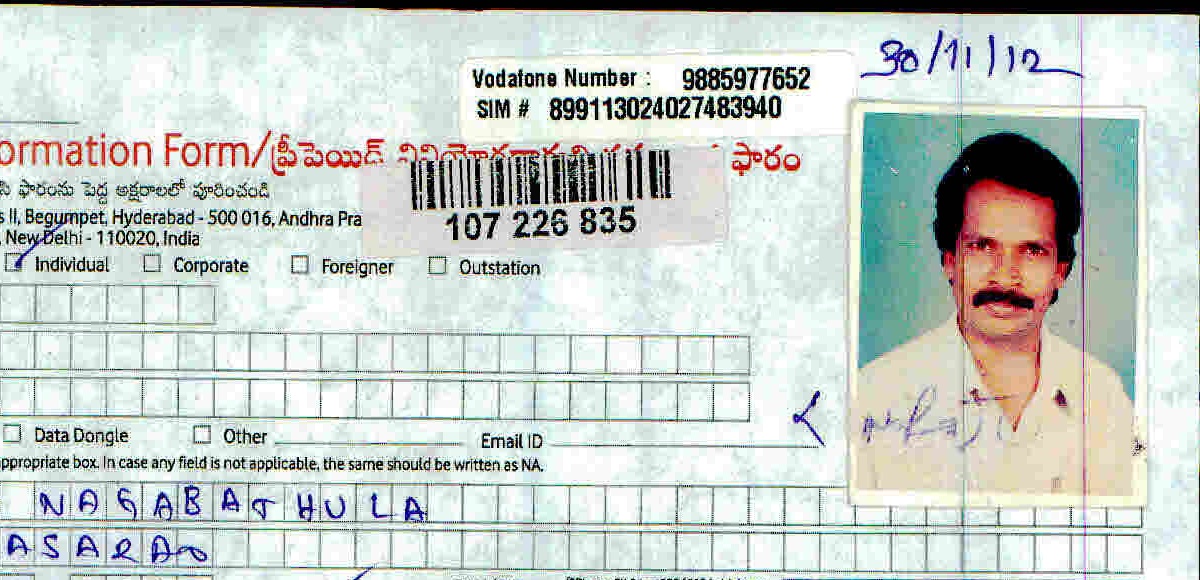 30/11/12
Vodafone Number : 9885977652
SIM # 899113024027483940
ormation Form/ప్రీపెయిడ్ ఫారం
ని ఫారంను పెద్ద అక్షరాలలో పూరించండి
s II, Begumpet, Hyderabad - 500 016, Andhra Pra
, New Delhi - 110020, India
107 226 835
Individual Corporate Foreigner Outstation
Data Dongle Other Email ID
appropriate box. In case any field is not applicable, the same should be written as NA.
NAGABATHULA
ASARAO